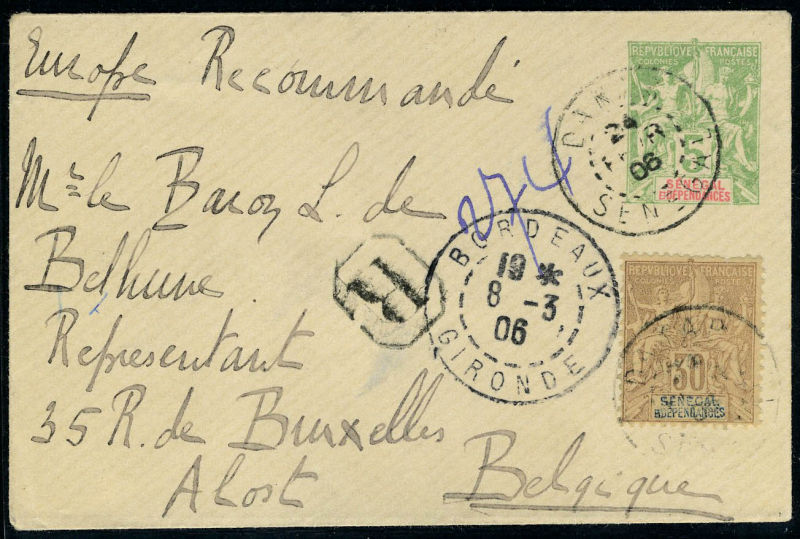 Europe Recommandé
Mr. le Baron L. de
Bethune
Representant
35 R. de Bruxelles
Alost Belgique
274
R
REPVBLIQVE FRANÇAISE
COLONIES POSTES
5
SÉNÉGAL
ET DÉPENDANCES
DAKAR
24
FEVR
06
SENEGAL
BORDEAUX
19 *
8 -3
06
GIRONDE
REPVBLIQVE FRANÇAISE
COLONIES POSTES
30
SÉNÉGAL
ET DÉPENDANCES
DAKAR